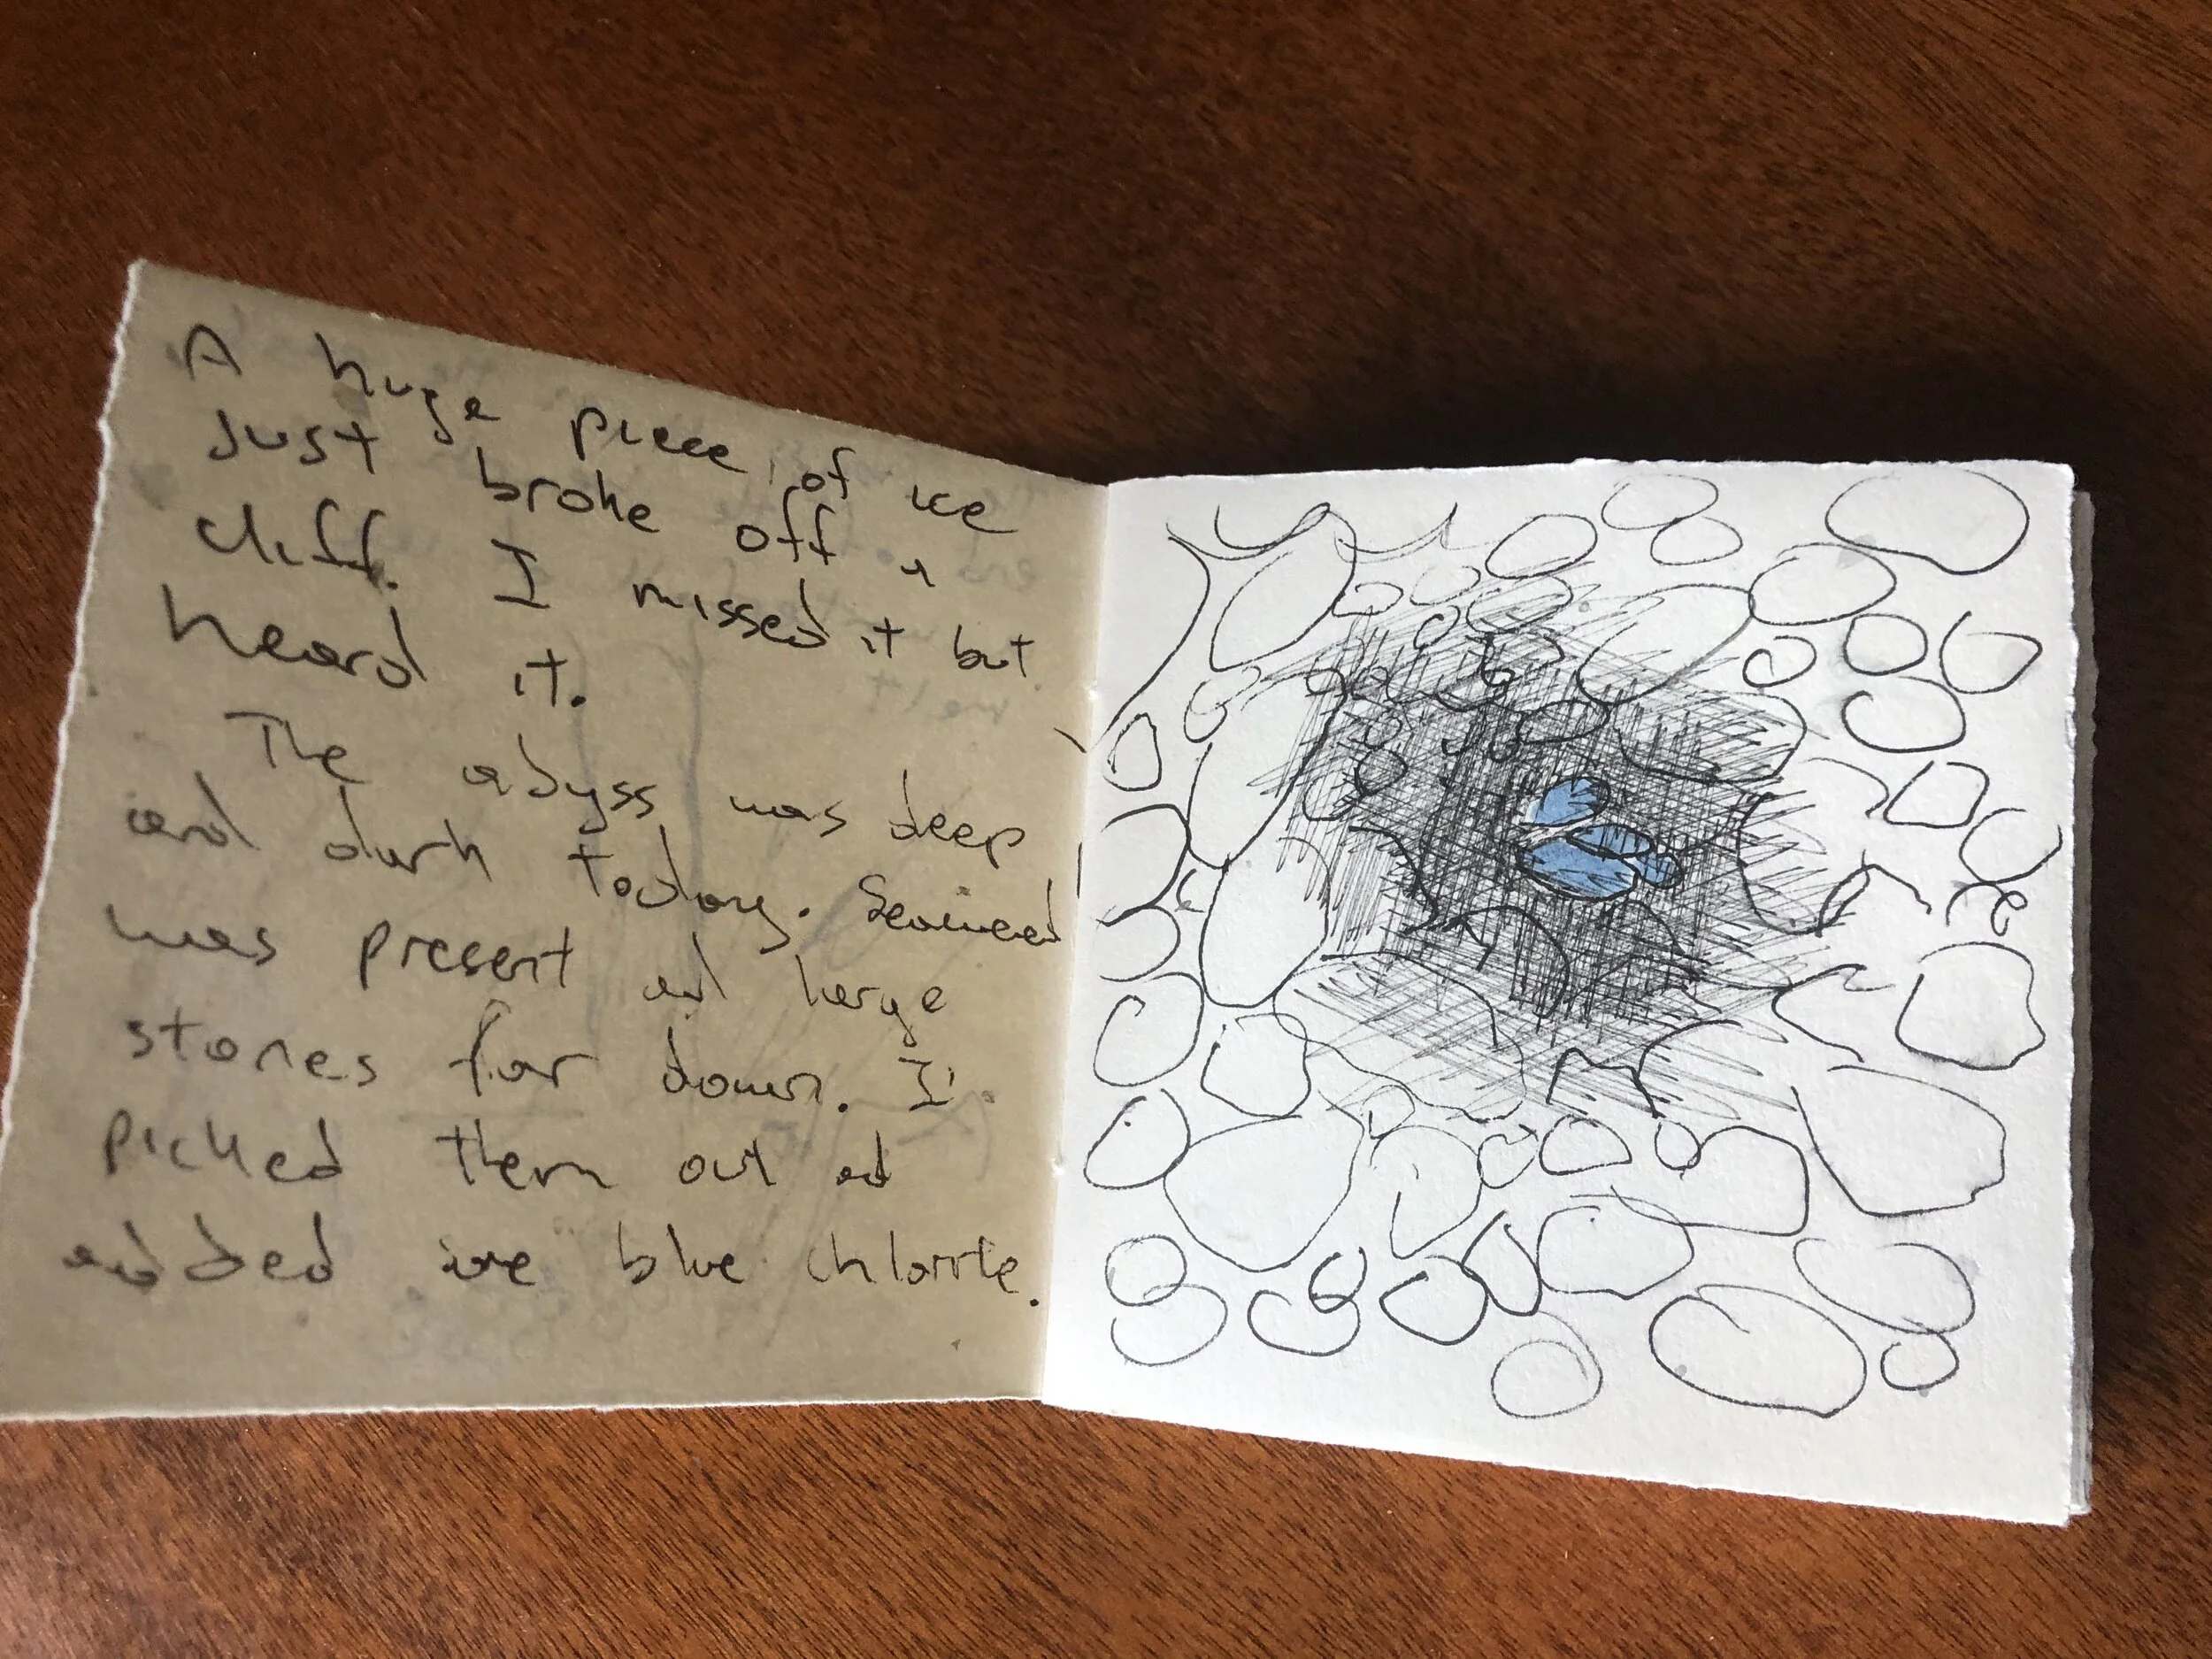 A huge piece of ice
Just broke off a
cliff. I missed it but
heard it.
The abyss was deep
and dark today. Seaweed
was present and large
stones far down. I
picked them out ad
added some blue chlorite.